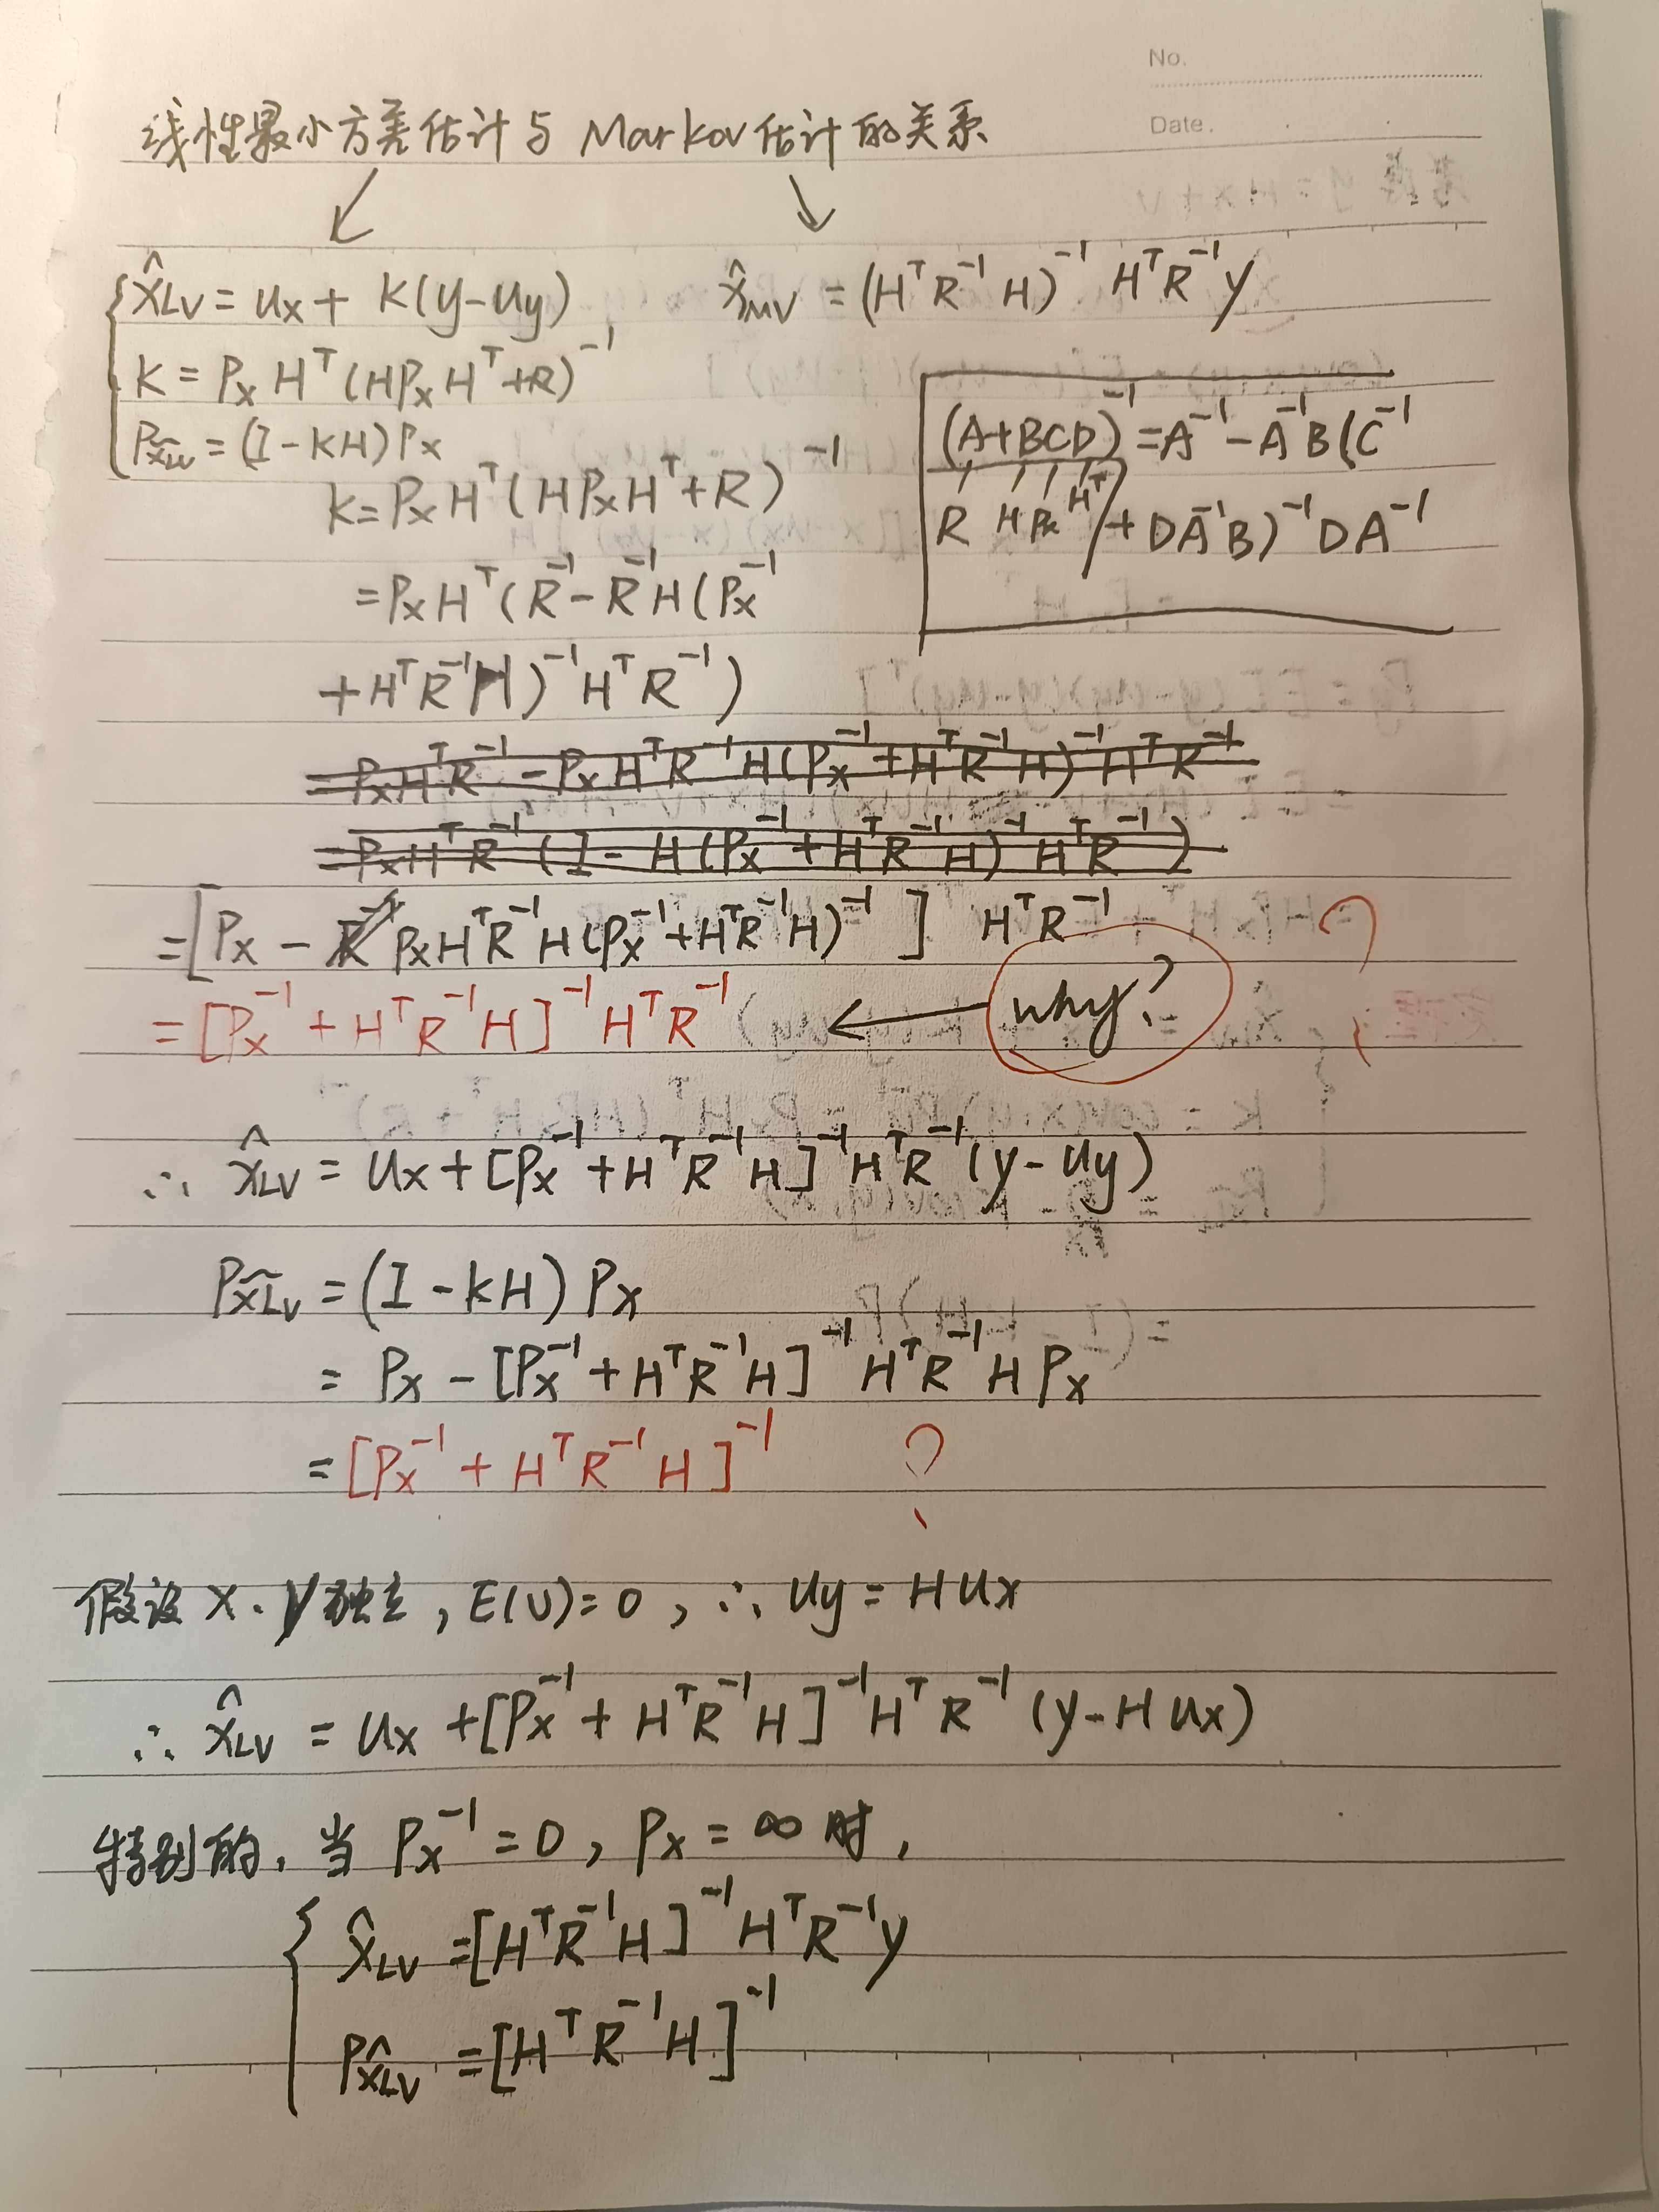 No.
Date.
线性最小方差估计与 Markov 估计的关系
x̂_LV = u_x + K(y-u_y)
K = P_x H^T (HP_xH^T+R)^-1
P_x̃_LV = (I-KH)P_x
x̂_MV = (H^T R^-1 H)^-1 H^T R^-1 y
(A+BCD)^-1 = A^-1 - A^-1 B(C^-1
R H P_x H^T + DA^-1B)^-1 DA^-1
K = P_x H^T (HP_xH^T+R)^-1
= P_x H^T (R^-1 - R^-1 H(P_x^-1
+ H^T R^-1 H)^-1 H^T R^-1)
= P_x H^T R^-1 - P_x H^T R^-1 H(P_x^-1 + H^T R^-1 H)^-1 H^T R^-1
= P_x H^T R^-1 (I - H(P_x^-1 + H^T R^-1 H)^-1 H^T R^-1)
= [P_x - R^-1 P_x H^T R^-1 H(P_x^-1 + H^T R^-1 H)^-1] H^T R^-1 ?
= [P_x^-1 + H^T R^-1 H]^-1 H^T R^-1 ← why?
∴ x̂_LV = u_x + [P_x^-1 + H^T R^-1 H]^-1 H^T R^-1 (y-u_y)
P_x̃_LV = (I-KH) P_x
= P_x - [P_x^-1 + H^T R^-1 H]^-1 H^T R^-1 H P_x
= [P_x^-1 + H^T R^-1 H]^-1 ?
假设 X、V独立, E(V)=0, ∴ u_y = H u_x
∴ x̂_LV = u_x + [P_x^-1 + H^T R^-1 H]^-1 H^T R^-1 (y-H u_x)
特别的, 当 P_x^-1 = 0, P_x = ∞ 时,
x̂_LV = [H^T R^-1 H]^-1 H^T R^-1 y
P_x̂_LV = [H^T R^-1 H]^-1